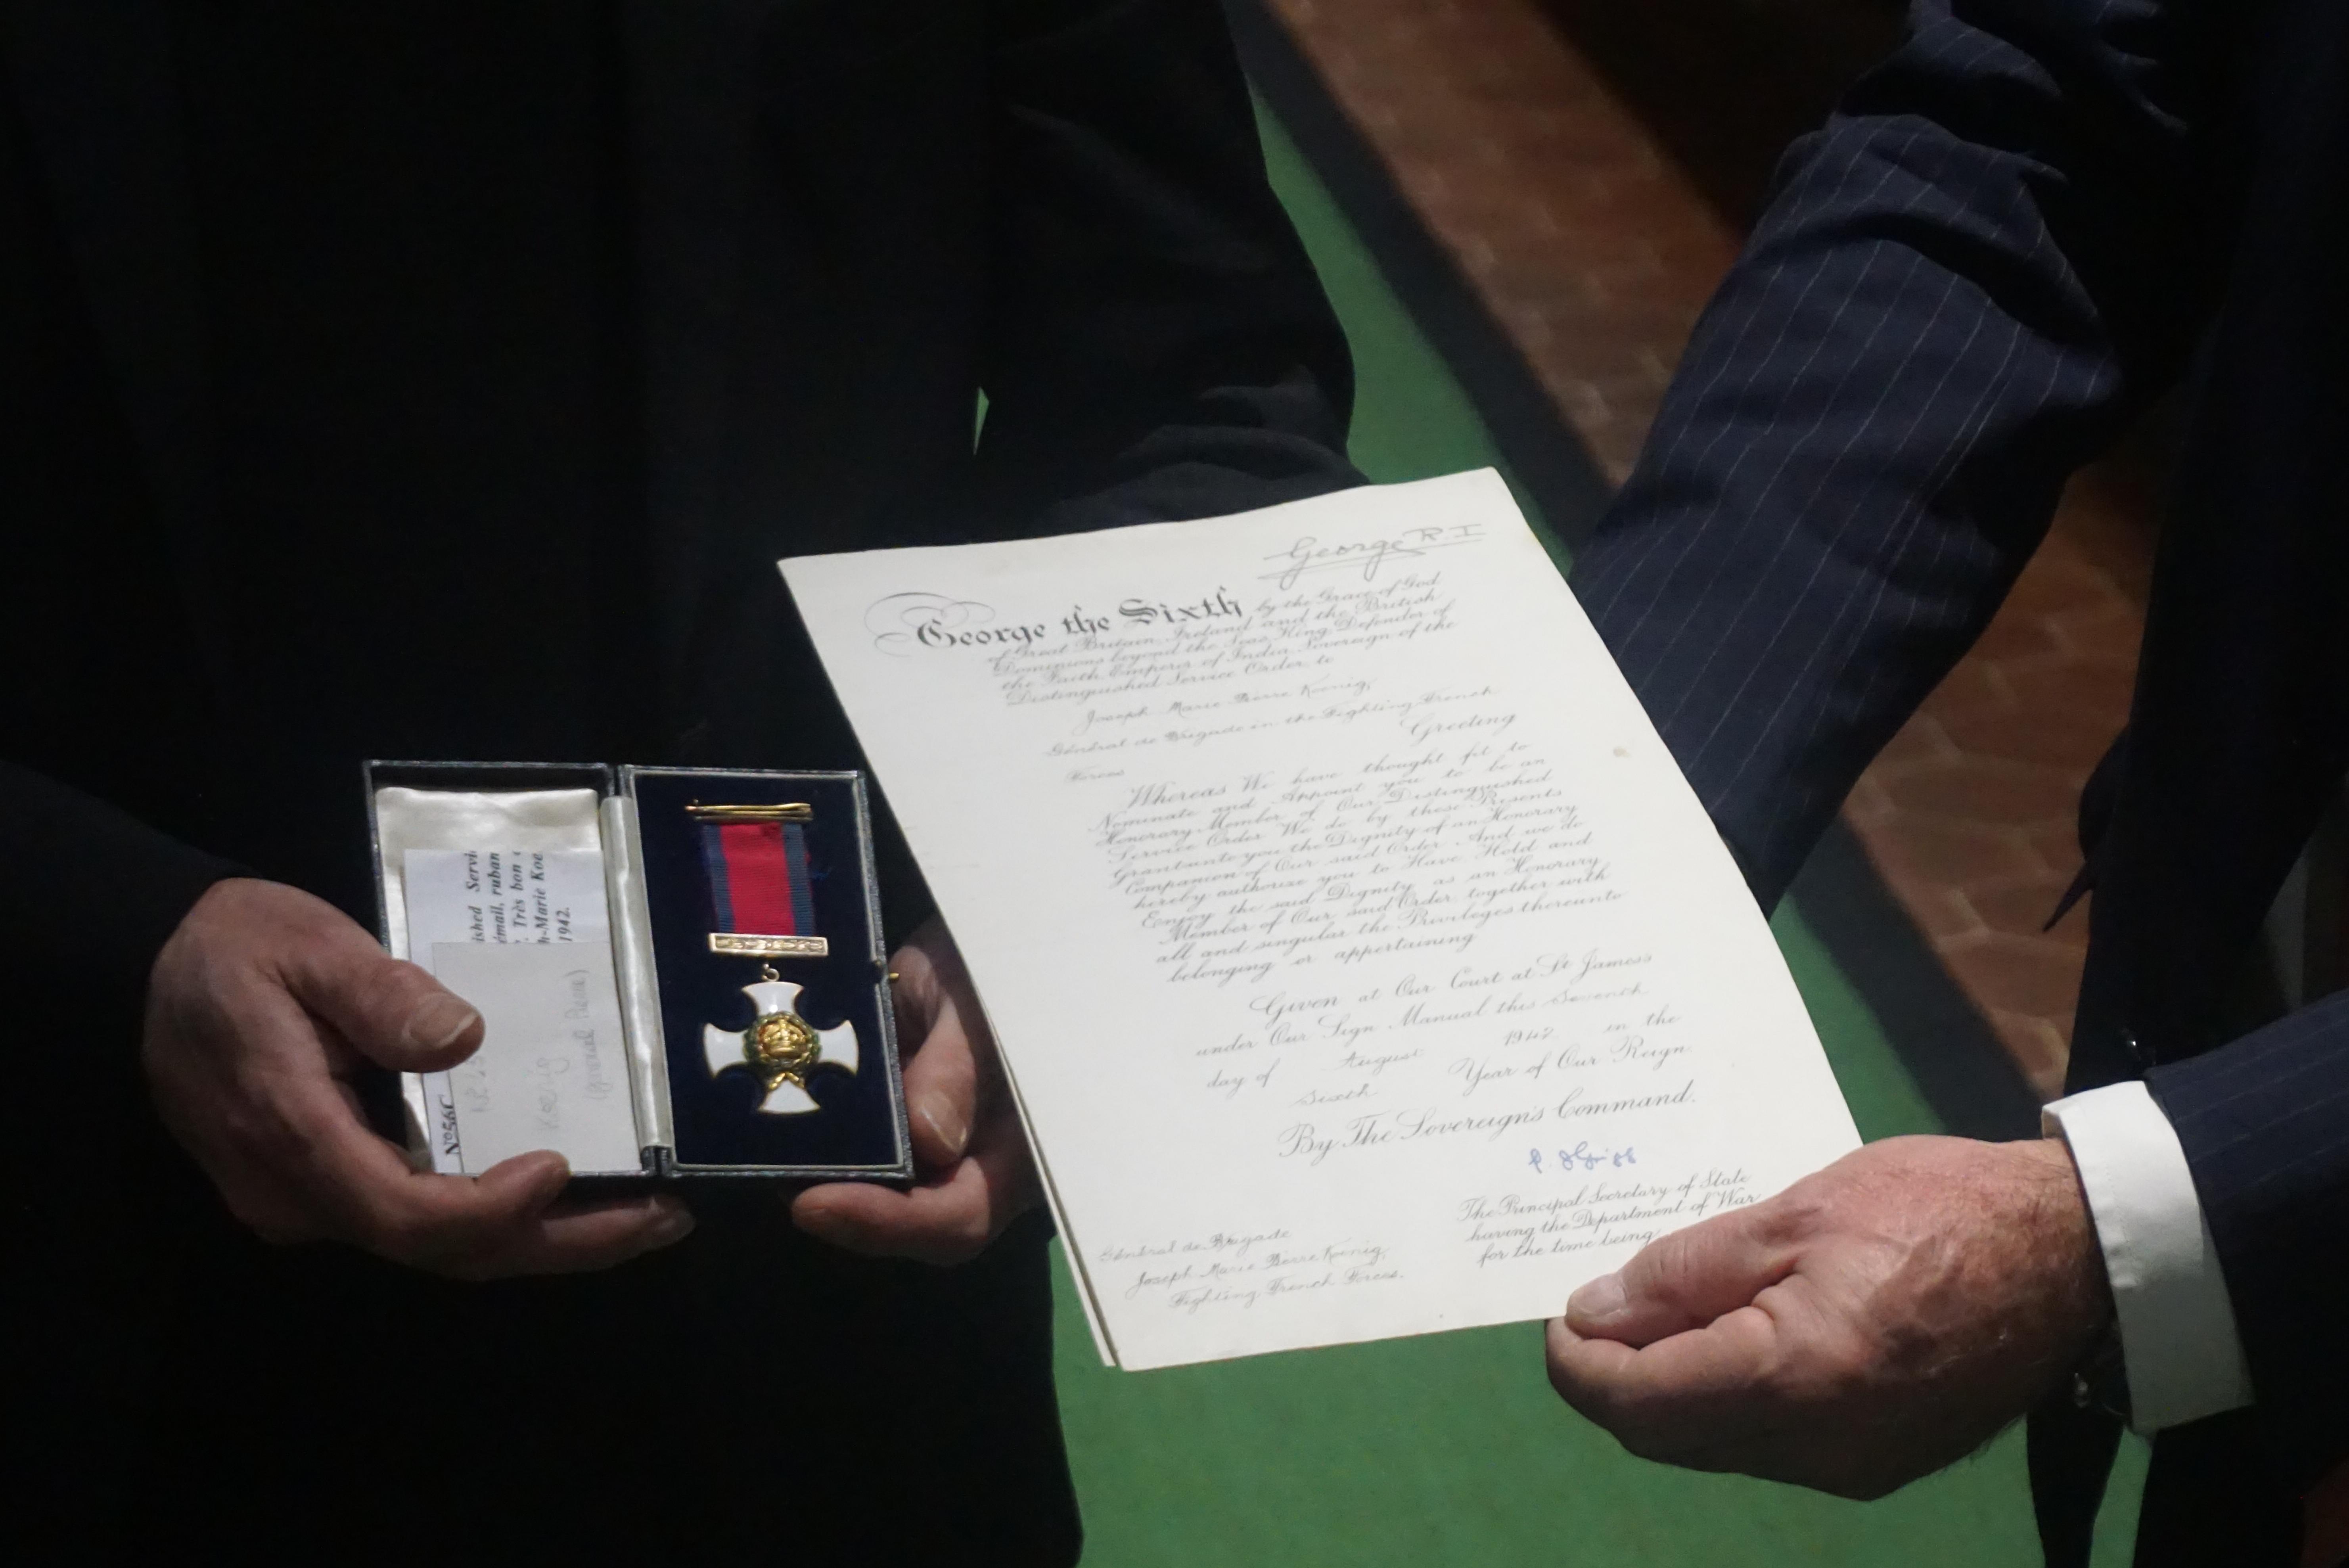 ished Servi
émail, ruban
Très bon
h-Marie Koe
1942.
Koenig
(General Pierre)
George R.I
George the Sixth by the Grace of God
of Great Britain, Ireland and the British
Dominions beyond the Seas King, Defender of
the Faith, Emperor of India, Sovereign of the
Distinguished Service Order, to
Joseph Marie Pierre Koenig,
Général de Brigade in the Fighting French
Forces
Greeting
Whereas We have thought fit to
Nominate and Appoint you to be an
Honorary Member of Our Distinguished
Service Order We do by these Presents
Grant unto you the Dignity of an Honorary
Companion of Our said Order And we do
hereby authorize you to Have Hold and
Enjoy the said Dignity as an Honorary
Member of Our said Order, together with
all and singular the Privileges thereunto
belonging or appertaining
Given at Our Court at St James's
under Our Sign Manual this Seventh
day of August 1942 in the
Sixth Year of Our Reign.
By The Sovereign's Command.
The Principal Secretary of State
having the Department of War
for the time being.
Général de Brigade
Joseph Marie Pierre Koenig,
Fighting French Forces.